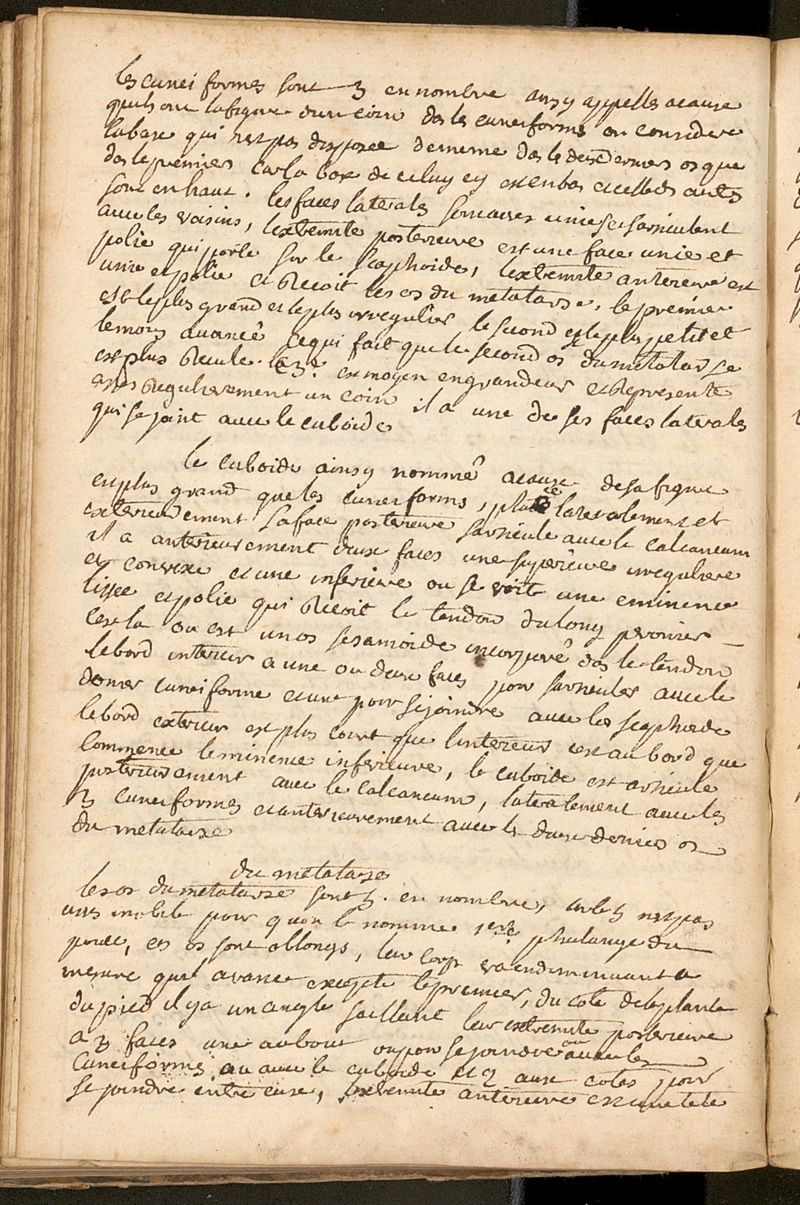 les cunei formes sont 3 en nombre ainsy appelles acause
quils ont la figure dun coin das les cuneiformes on considere
la base qui nest pas disposee de meme das les deux derniers os que
das le premier car la base de celuy cy est en bas et celle des autres
sont en haut. les faces laterales sont unies et sarticulent
avec les voisins, lextremite posterieure est une face unie et
polie qui porte sur le scaphoide, lextremite anterieure est
unie et polie et recoit les os du metatarse, le premier
est le plus grand et le plus irregulier le second est le plus petit et
le moins avancé ce qui fait que le second os du metatarse
est plus recule. le 3e est moyen en grandeur et represente
asses regulierement un coin il a une de ses faces laterales
qui se joint avec le cuboide
le cuboide ainsy nommé acause de sa figure
est plus grand que les cuneiformes, placé lateralement et
exterieurement sa face posterieure sarticule avec le calcaneum
il a anterieurement deux faces une superieure irreguliere
et convexe et une inferieure ou se voit une eminence
lissee et polie qui recoit le tendon du long peronier
cest la ou est un os sesamoide incorporé das le tendon
le bord interieur a une ou deux faces pour sarticuler avec le
dernier cuneiforme et une pour se joindre avec le scaphoide
le bord exterieur est plus court que linterieur cest au bord que
commence leminence inferieure, le cuboide est articule
posterieurement avec le calcaneum, lateralement avec les
3 cuneiformes et anterieurement avec les deux derniers os
du metatarse
du metatarse
les os du metatarse sont 5. en nombre, nest pas
asses mobile pour quon le nomme 1ere phalange du
pouce, ces os sont oblongs, leur corps va en diminuant a
mesure quil avance excepte le premier, du coté de la plante
du pied il y a un angle saillant leur extremite posterieure
a 3 faces une au bout ou pour se joindre ou avec les
cuneiformes ou avec le cuboide et 2 aux cotes pour
se joindre entre eux, lextremite anterieure est une tete